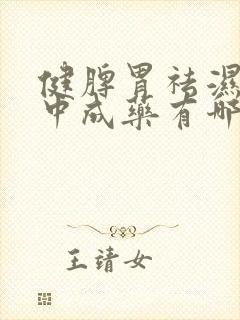 健脾胃祛濕
中成藥有哪
王靖女